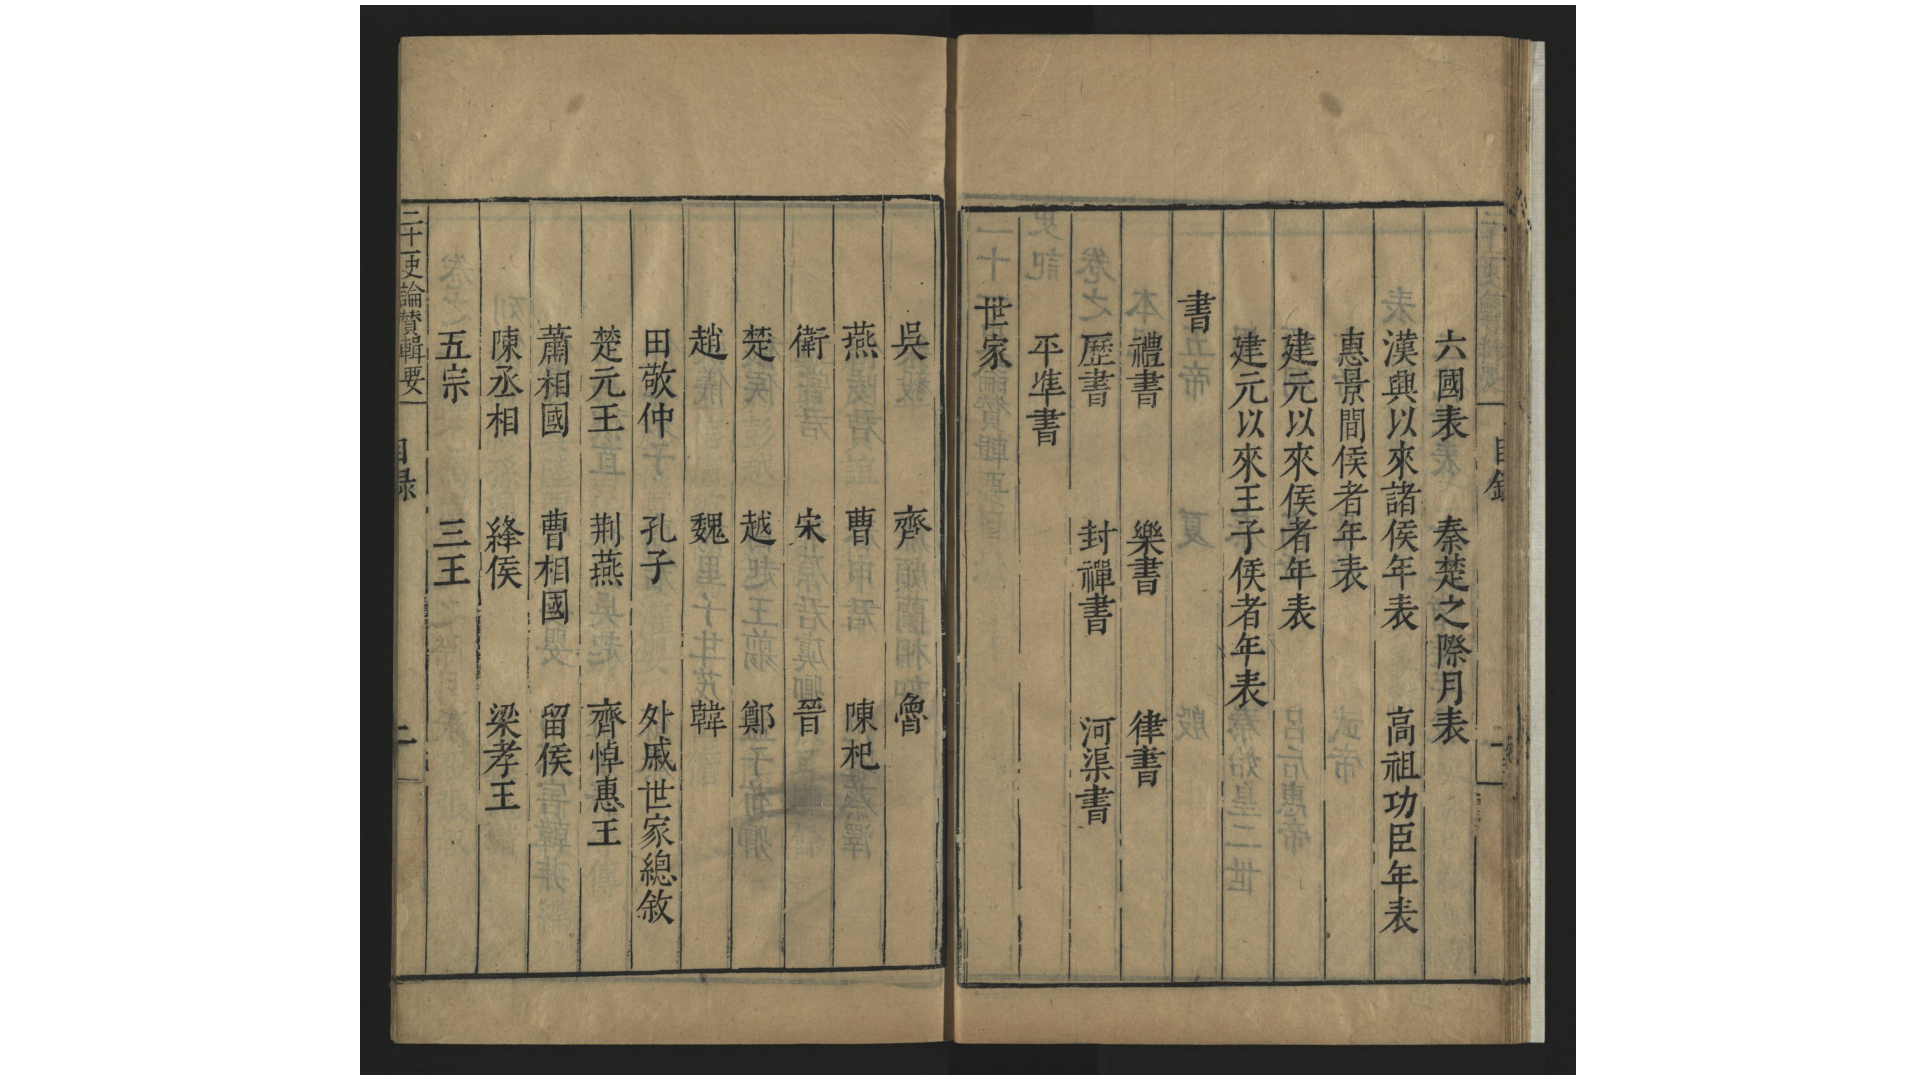 六國表 秦楚之際月表
漢興以來諸侯年表 高祖功臣年表
惠景間侯者年表
建元以來侯者年表
建元以來王子侯者年表
書
禮書 樂書 律書
歷書 封禪書 河渠書
平準書
世家
吳 齊 魯
燕 曹 陳杞
衛 宋 晉
楚 越 鄭
趙 魏 韓
田敬仲 孔子 外戚世家總敘
楚元王 荆燕 齊悼惠王
蕭相國 曹相國 留侯
陳丞相 絳侯 梁孝王
五宗 三王
二十一史論贊輯要 目録 二